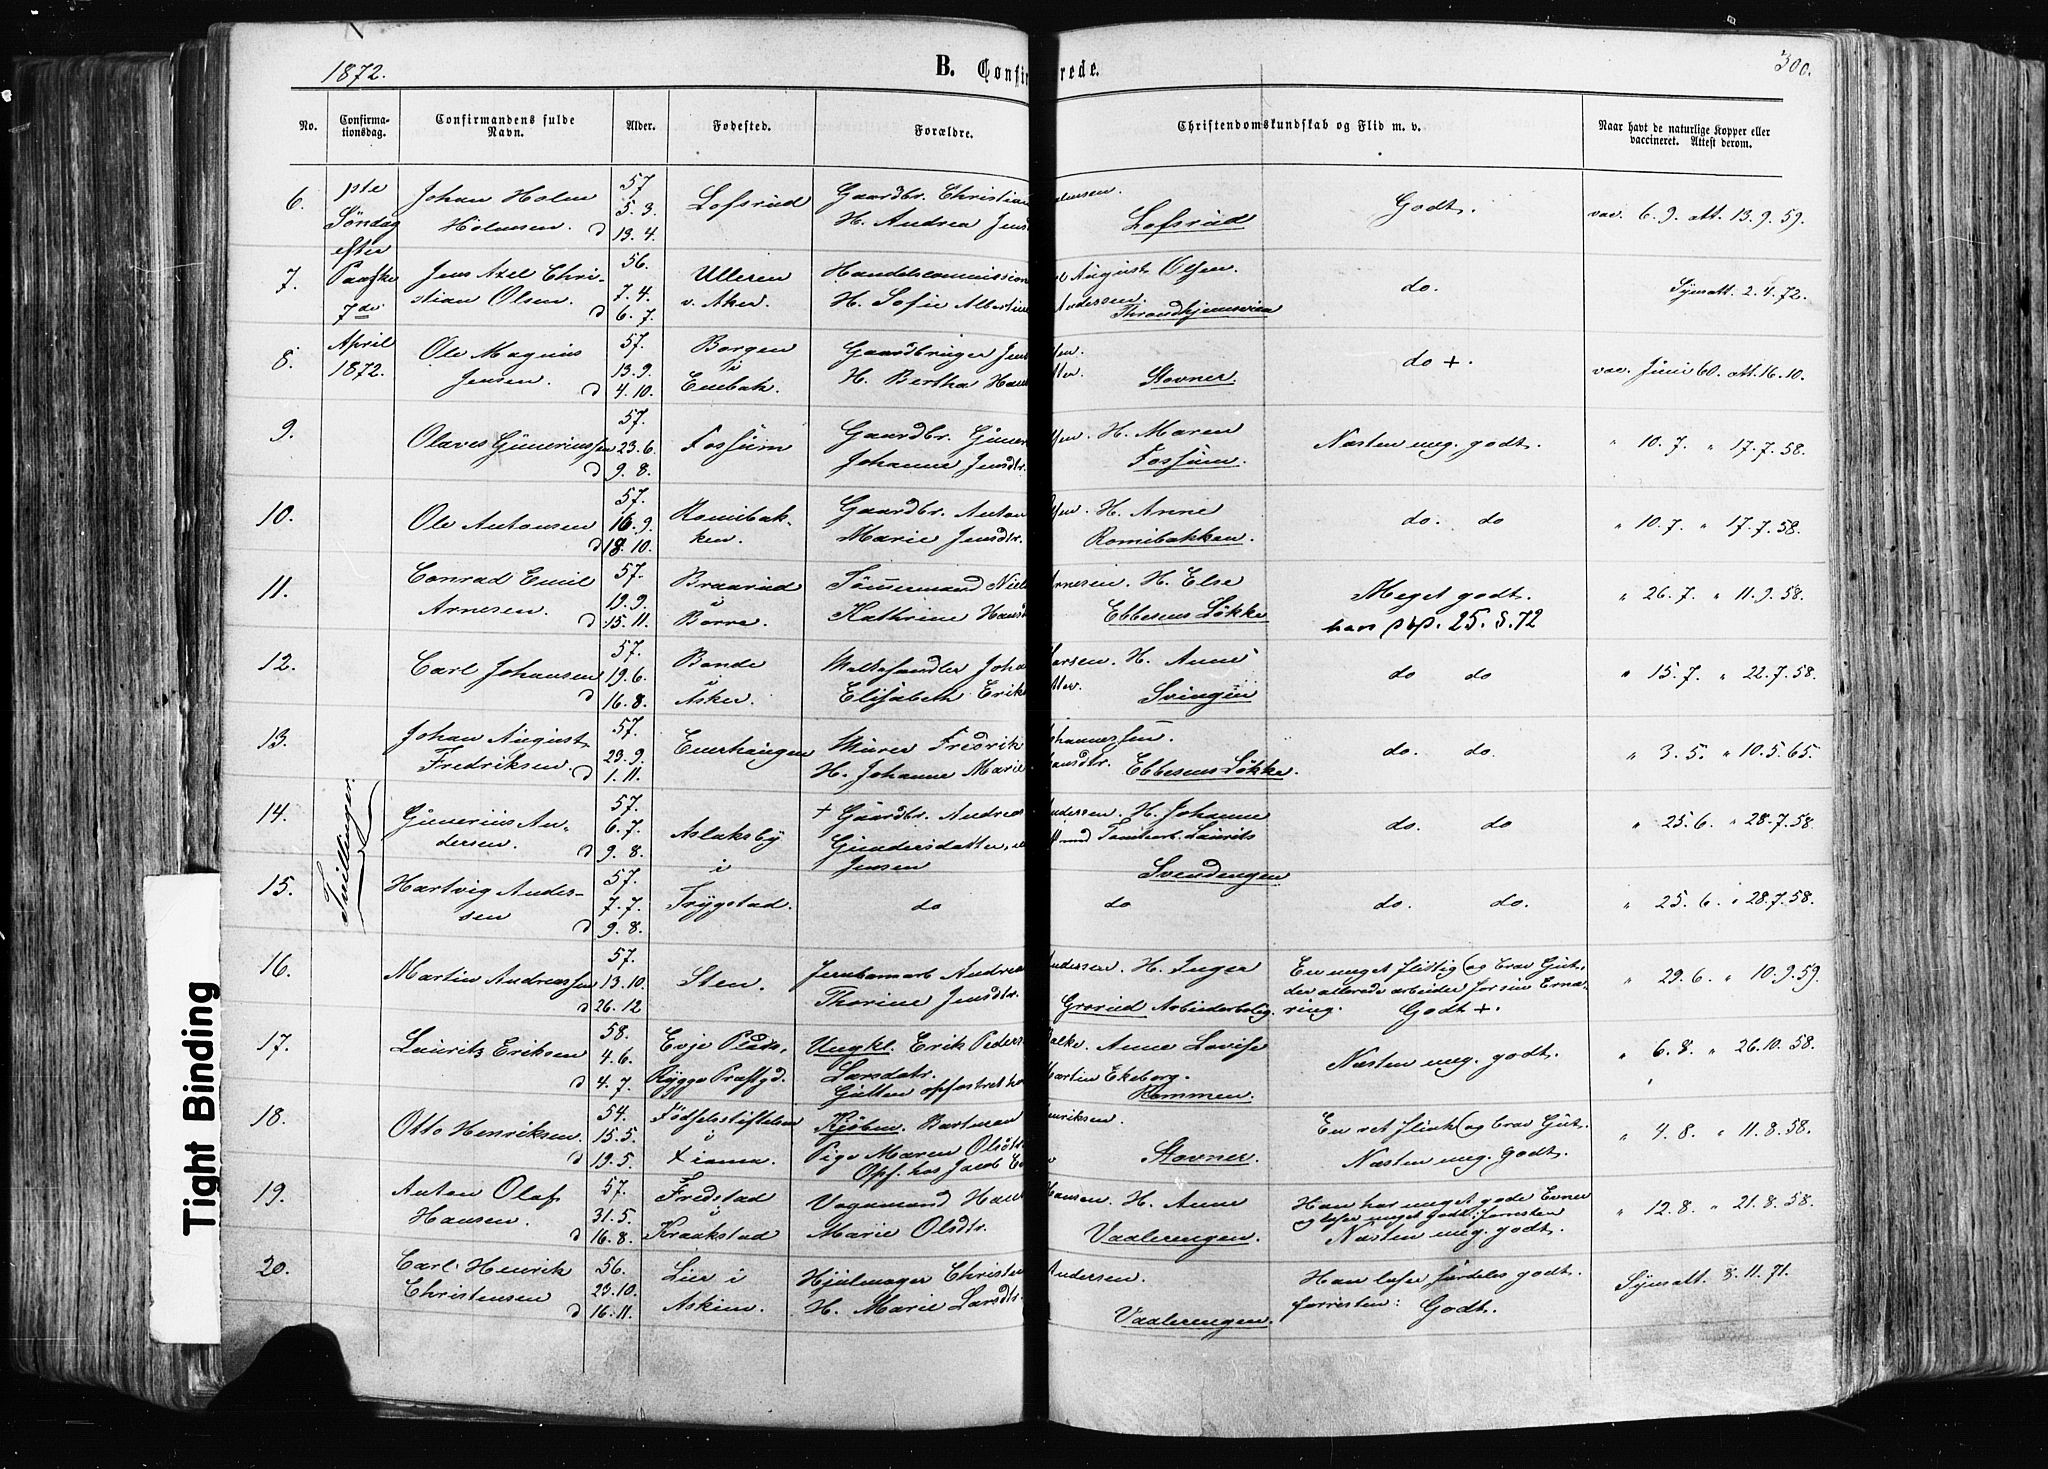 1872.
B. Confir rede.
300.
No.
Confirma-
tionsdag.
Confirmandens fulde
Navn.
Alder.
Fødested.
Forældre.
Christendomskundskab og Flid m. v.
Naar havt de naturlige Kopper eller
vaccineret. Attest derom.
1ste
Søndag
efter
Paaske
7de
April
1872.
6. Johan Holm 57. Lofsrud Gaardbr. Christian
Holmsen. d 5.3. H. Andrea Lofsrud Godt. vac. 6.9. att. 13.9.59.
13.4.
7. Jens Axel Chri- 56. Ulleren Handelscommission August Olsen.
stian Olsen. d 7.4. v. Aker. H. Sofie Albertine Andersen. do. Symatt. 2.4.72.
6.7. Throndhjemsveien
8. Ole Magnus 57. Borgen Gaardbruger Jens
Jensen. 13.9. i H. Bertha Stovner. do + vac. Juni 60. att. 16.10.
d 4.10. Enebak.
9. 57.
Olaves Gunerius sen 23.6. Fossum Gaardbr. H. Maren Næsten meg. godt. " 10.7. " 17.7.58.
d 9.8. Johanne Jensdtr. Fossum.
10. 57. Romibak- Gaardbr. Anton H. Anne
Ole Antonsen 16.9. ken. Marie Jensdtr. Romibakken. do. do " 10.7. " 17.7.58.
d 18.10.
11. Conrad Emil 57. Braarud Tømmermand Niels Arnesen. H. Else Meget godt. " 26.7. " 11.9.58.
Arnesen. 19.9. i Kathrine Ebbesens Løkke 25.
d 15.11. Borre.
12. 57. Bonde
Carl Johansen 19.6. i H. Anne do do " 15.7. " 22.7.58.
d 16.8. Asker Elisabeth Svingen
13. Johan August 57. Enerhaugen Murer Fredrik
Fredriksen. 23.9. H. Johanne Marie Ebbesens Løkke. do. do. " 3.5. " 10.5.65.
d 1.11.
Tvillinger.
14. Gunerius An- 57. Aslaksby + Gaardbr. Andreas Andersen. H. Johanne
dersen. 6.7. i Gundersdatter, Laurits do. do " 25.6. " 28.7.58.
d 9.8. Jensen Svendengen
15. Hartvig Ander- 57.
sen 7.7. Trygstad. do do do. do. " 25.6. " 28.7.58.
d 9.8.
16. 57.
Martin Andreassen 13.10. Sten. Andreas Andersen. H. Inger En meget flittig (og brav Gut,
d 26.12 Thorine Jensdtr. Grorud Arbeiderbolig. der allerede arbeider for sin Ernæ-
ring. Godt +. " 29.6. " 10.9.59.
17. 58. Evje Plads, Ungkl. Erik Peders Anne Lovise
Lauritz Eriksen 4.6. Rygge Præstgd. Larsdatr. Næsten meg. godt. " 6.8. " 26.10.58.
d 4.7. Gutten opfostret Martin Ekeberg.
Rommen.
18. 54. Fødselsstiftelsen
Otto Henriksen. 15.5. i Pige Maren Olsdtr. Stovner. En ret flink (og brav Gut. " 4.8. " 11.8.58.
d 19.5. Xiania. Opf. hos Jacob Næsten meg. godt.
19. Anton Olaf 57. Fredstad Vognmand Hans Hansen. H. Anne Han har meget gode Evner
Hansen. 31.5. i Marie Olsdtr. Vaalerengen. og læser meget godt; forresten
d 16.8. Kraakstad Næsten meg. godt. " 12.8. " 21.8.58.
20. Carl Henrik 56. Lier i Hjulmager Christen Andersen. Han læser særdeles godt.
Christensen 23.10. Askim. H. Marie Larsdtr. Vaalerengen. forresten: Godt. Symatt. 8.11.71.
d 16.11.
Tight Binding